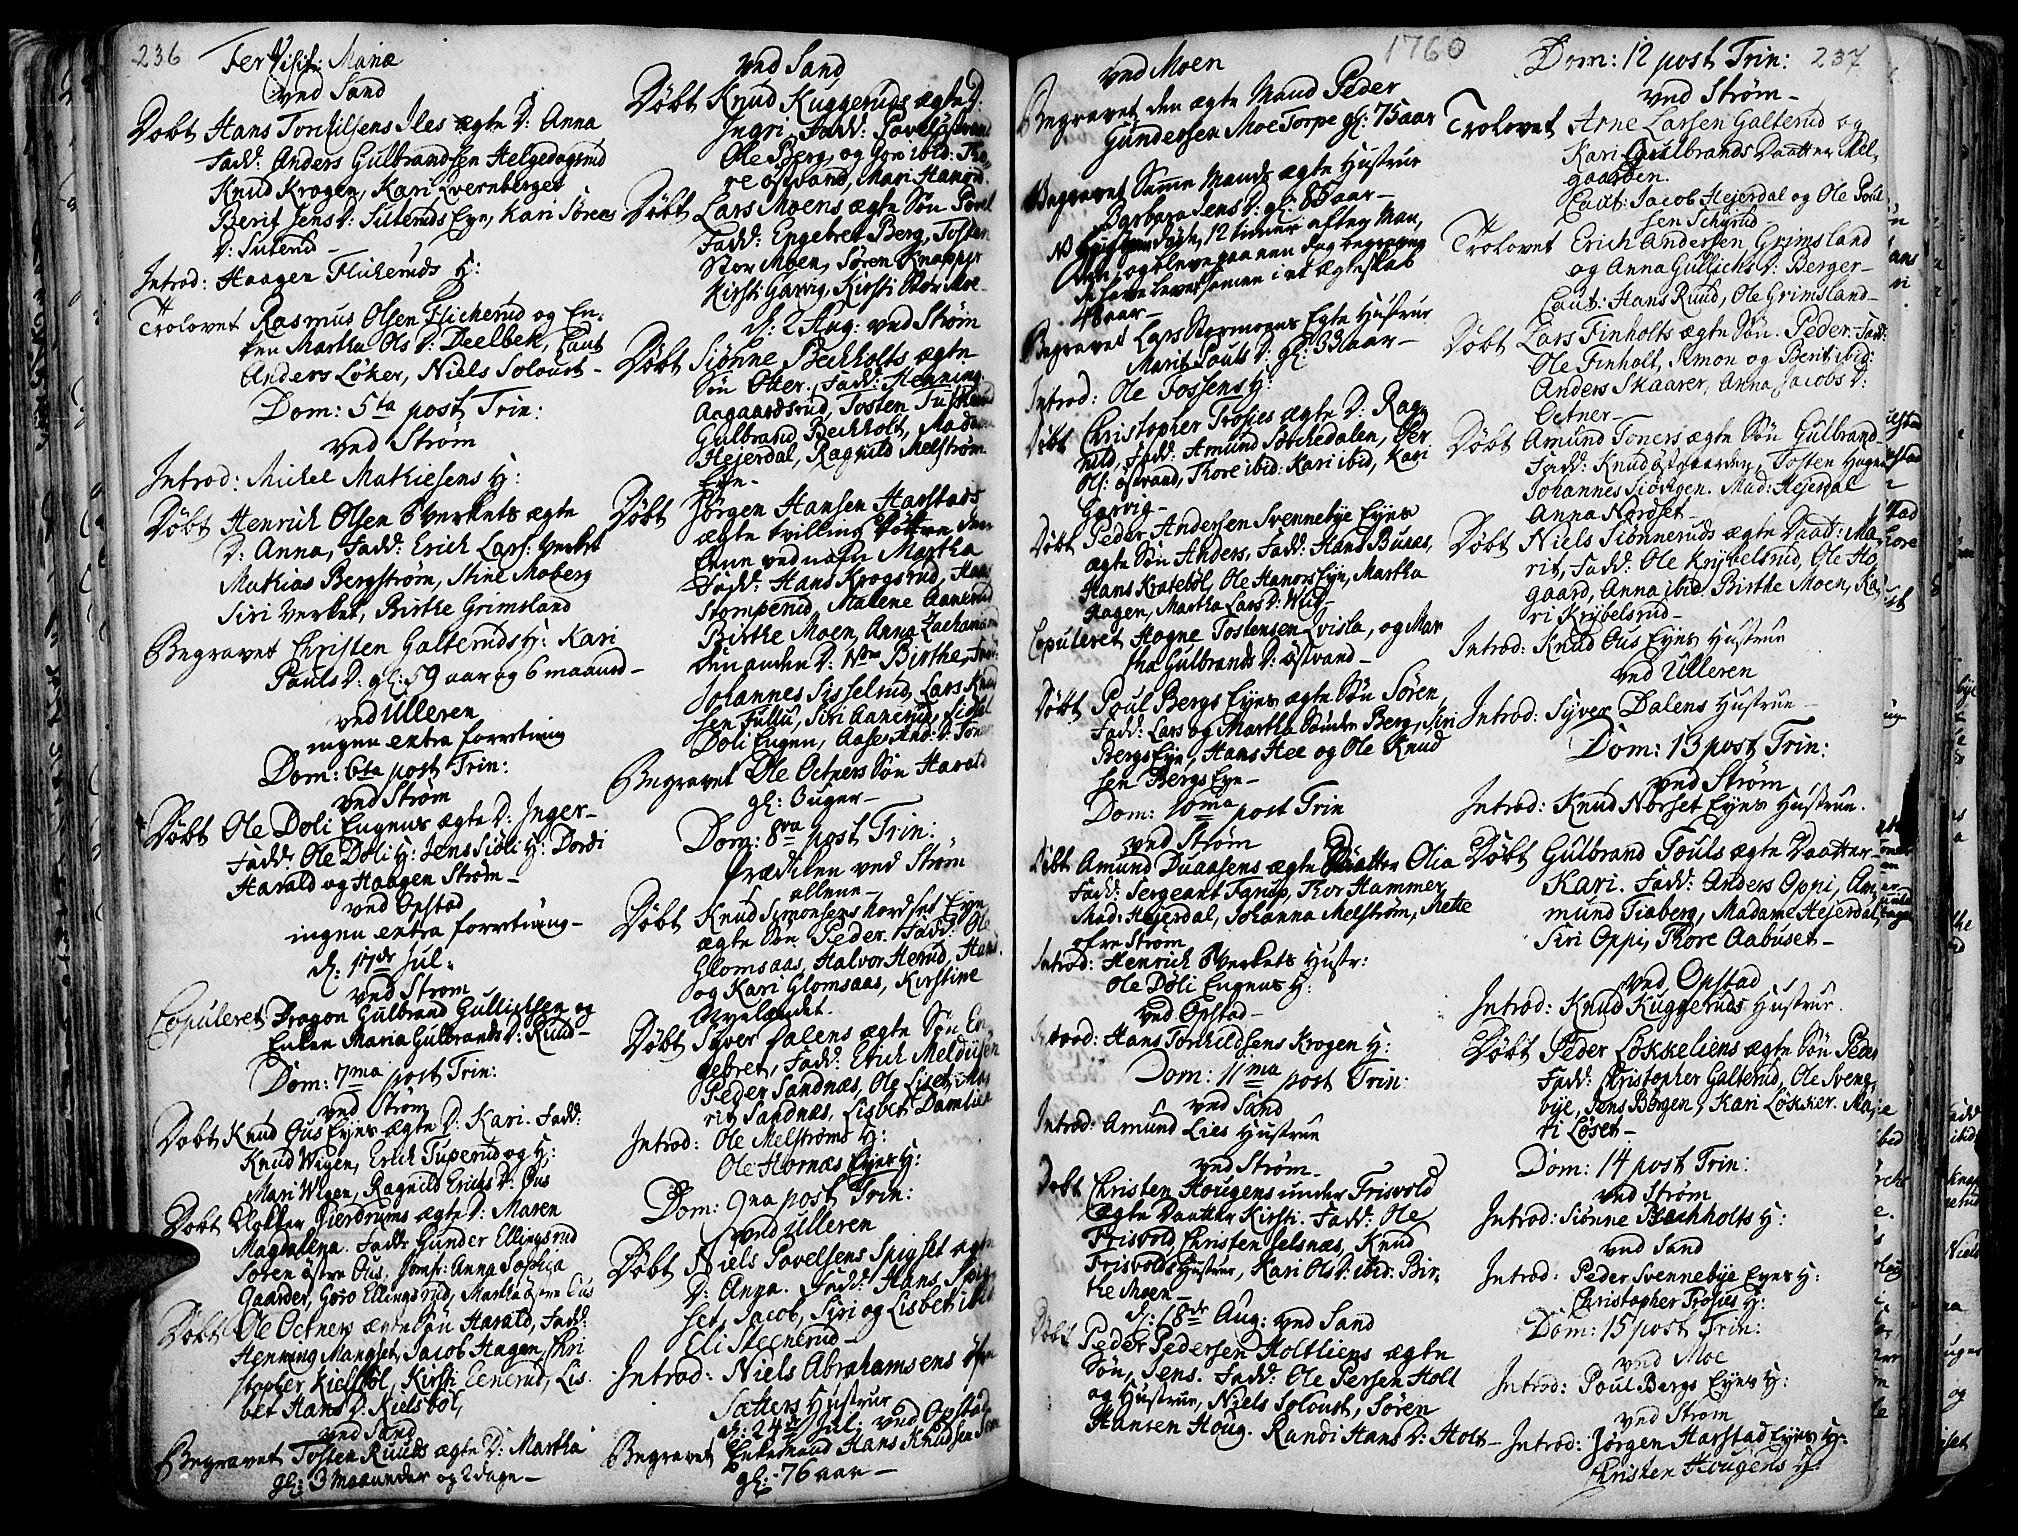 236
Fer Visit: Mariæ
ved Sand
Døbt Hans Torchilsens Iles ægte D: Anna
Fadd: Anders Gulbrandsen Helgedagsrud
Knud Krogen, Kari Qvernberget
Berit Jens D: Suterud Eye, Kari Sørens
D: Suterud —
Introd: Haagen Flicheruds H:
Trolovet Rasmus Olsen Flicherud og En,
ken Martha Ols D: Deelbek, Caut
Anders Løker, Niels Soloust —
Dom: 5ta post Trin:
ved Strøm
Introd: Michel Mathiesens H:
Døbt Henrich Olsen Verkets ægte
D: Anna, Fadd: Erich Lars: Verket
Mathias Bergstrøm, Stine Moberg
Siri Verket, Birthe Grimsland
Begravet Christen Galteruds H: Kari
Pouls D: gl: 59 aar og 6 maaned —
ved Ulleren
ingen extra forretning
Dom: 6ta post Trin:
ved Strøm
Døbt Ole Døli Engens ægte D: Inger —
Fadd: Ole Døli H: Jens Siøli H: Dordi
Harald og Haagen Strøm —
ved Opstad
ingen extra forretning —
d: 17de Jul:
ved Strøm
Copuleret Dragon Gulbrand Gullichsen og
Enken Maria Gulbrands D: Ruud —
Dom: 7ma post Trin:
ved Strøm
Døbt Knud Ous Eyes ægte D: Kari. Fadd:
Knud Wigen, Erich Tuperud og H:
Mari Wigen, Ragnild Erichs D: Ous
Døbt Klokker Gierdrums ægte D: Maren
Magdalena. Fadd: Gunder Ellingsrud
Søren østre Ous, Jomfr: Anna Sophia
Gaarder, Goro Ellingsrud, Martha østre Ous
Døbt Ole Oetners ægte Søn Harald, Fadd:
Henning Mangset, Jacob Hagen, Chri
stopher Kielsbøl, Kirsti Eenerud, Lis,
bet Hans D: Kielsbøl,
ved Sand
Begravet Tosten Ruuds ægte D: Martha
gl: 3 maaneder og 2 dage —
ved Sand
Døbt Knud Kuggeruds ægte D:
Ingri, Fadd: Povel
Ole Berg, og Goro ibid: Tho
re ostvand, Mari Hanord
Døbt Lars Moens ægte Søn Povel
Fadd: Engebret Berg, Tosten
Stor Moen, Søren Knapper
Kirsti Garvig, Kirsti Stor Moe —
d: 2 Aug: ved Strøm
Døbt Siønne Bechholts ægte
Søn Otter. Fadd: Henning
Aagaardsrud, Tosten
Gulbrand Bechholt, Madame
Hejerdal, Ragnild Melstrøm
Eye —
Døbt Jørgen Hansen Harstads
ægte tvilling Døttre, den
eene ved nafn Martha
Fadd: Hans Krogsrud, Hans
Stomperud, Malene Aanerud
Birthe Moen, Anna Zachari
Den anden D: Birthe, Fad:
Johannes Sisselrud, Lars Knud
sen Fullu, Siri Aanerud,
Døli Engen, Aase And: D:
Begravet Ole Oetners Søn Harald
gl: 3 uger —
Dom: 8va post Trin:
Prædiken ved Strøm
allene —
Døbt Knud Simonsens Nordset Eye
ægte Søn Peder. Fadd: Ole
Glomsaas, Halvor Herud, Hans
og Kari Glomsaas, Kirstine
Døbt Syver Dalens ægte Søn En
gebret, Fadd: Erich Meldiisen
Peder Sandnæs, Ole Liset, Ma,
rit Sandnæs, Lisbet Damlien
Introd: Ole Melstrøms H:
Ole Hornæs Eyes H:
Dom: 9na post Trin:
ved Ulleren
Døbt Niels Povelsens Spigset ægte
D: Anna. Fadd: Hans Spig
set, Jacob, Siri og Lisbet ibid
Eli Steenerud —
Introd: Niels Abrahamsens
Sætters Hustrue
d: 24de Jul: ved Opstad
Begravet Enkemand Hans Knudsen
gl: 76 aar —
1760
ved Moen
Begravet den ægte Mand Peder
Gundersen MoeTorpe gl: 75 aar
Begravet Samme Mands ægte Hustrue
Barbara Jens D: gl: 85 aar —
NB døde 12 timer efter Man,
den, og bleve paa een dag begraven
de have levet samen i et Ægteskab
48 aar —
Begravet Lars Stormoens Egte Hustrue
Marit Pouls D: gl: 33 aar —
Introd: Ole Fossens H:
Døbt Christopher Frosies ægte D: Rag,
nild, Fadd: Amund Sørchedalen, Per
Ols: ostvand, Thore ibid: Kari ibid, Kari
Garvig —
Døbt Peder Andersen Svennebye Eyes
ægte Søn Anders, Fadd: Hans Buaas,
Hans Kratebøl, Ole Hanors Eye, Martha
Hagen, Martha Lars D: Wiig
Copuleret Hogne Tostensen Qvisla, og Mar
tha Gulbrands D: Ostvand —
Døbt Poul Bergs Eyes ægte Søn Søren,
Fadd: Lars og Martha Søndre Berg, Siri
Bergs Eye, Hans Hee og Ole Knud
sen Bergs Eye —
Dom: 10ma post Trin
ved Strøm
Døbt Amund Duaasens ægte Daatter Olia
Fadd: Sergeant Tarup, Thor Hammer
Mad: Hejerdal, Johanna Melstrøm, Mette
øfre Strøm
Introd: Henrich Verkets Hustr:
Ole Døli Engens H:
ved Opstad —
Introd: Hans Torchildsens Krogen H:
Dom: 11ma post Trin:
ved Sand
Introd: Amund Lies Hustrue
ved Strøm —
Døbt Christen Hougens under Frisvold
ægte Daatter Kirsti. Fadd: Ole
Frisvold, Christen Selsnæs, Knud
Frisvolds Hustrue, Kari Ols D: ibid: Bir,
the Moen —
d: 18de Aug: ved Sand
Døbt Peder Pedersen Holtliens ægte
Søn, Jens. Fadd: Ole Persen Holt
og Hustrue, Niels Soloust, Søren
Hansen Houg. Randi Hans D: Holt —
Dom: 12 post Trin: 237
ved Strøm —
Trolovet Arne Larsen Galterud og
Kari Gulbrands Daatter Mel,
gaarden.
Caut: Jacob Hejerdal og Ole Poul
sen Schyrud —
Trolovet Erich Andersen Grimsland
og Anna Gullichs D: Berger —
Caut: Hans Ruud, Ole Grimsland —
Døbt Lars Finholts ægte Søn. Peder Fad:
Ole Finholt, Simon og Berit ibid:
Anders Skaarer, Anna Jacobs D:
Oetner —
Døbt Amund Toners ægte Søn Gulbrand —
Fadd: Knud østgaarden, Tosten Hagen
Johannes Siøvigen. Mad: Hejerdal
Anna Nordset —
Døbt Niels Siønneruds ægte Daat: Ma,
rit, Fadd: Ole Krybelsrud, Ole Ho,
gaard, Anna ibid. Birthe Moen, Ka,
ri Krybelsrud
Introd: Knud Ous Eyes Hustrue
ved Ulleren
Introd: Syver Dalens Hustrue —
Dom: 13 post Trin:
ved Strøm
Introd: Knud Norset Eyes Hustrue.
Døbt Gulbrand Fouls ægte Daatter
Kari. Fadd: Anders Oppi, Am,
mund Tiaberg, Madame Hejerdal,
Siri Oppi, Thore Aabuset —
ved Opstad
Introd: Knud Kuggeruds Hustrue.
Døbt Peder Løkkeliens ægte Søn Peder
Fadd: Christopher Galterud, Ole Svene,
bye, Jens Børgen, Kari Løkker. Ma
ri Løser —
Dom: 14 post Trin:
ved Strøm
Introd: Siønne Bechholts H:
ved Sand
Introd: Peder Svennebye Eyes H:
Christopher Frosies H:
Dom: 15 post Trin:
ved Moe
Introd: Poul Bergs Eyes H:
ved Strøm
Introd: Jørgen Harstad Eyes H:
Christen Hougens H: